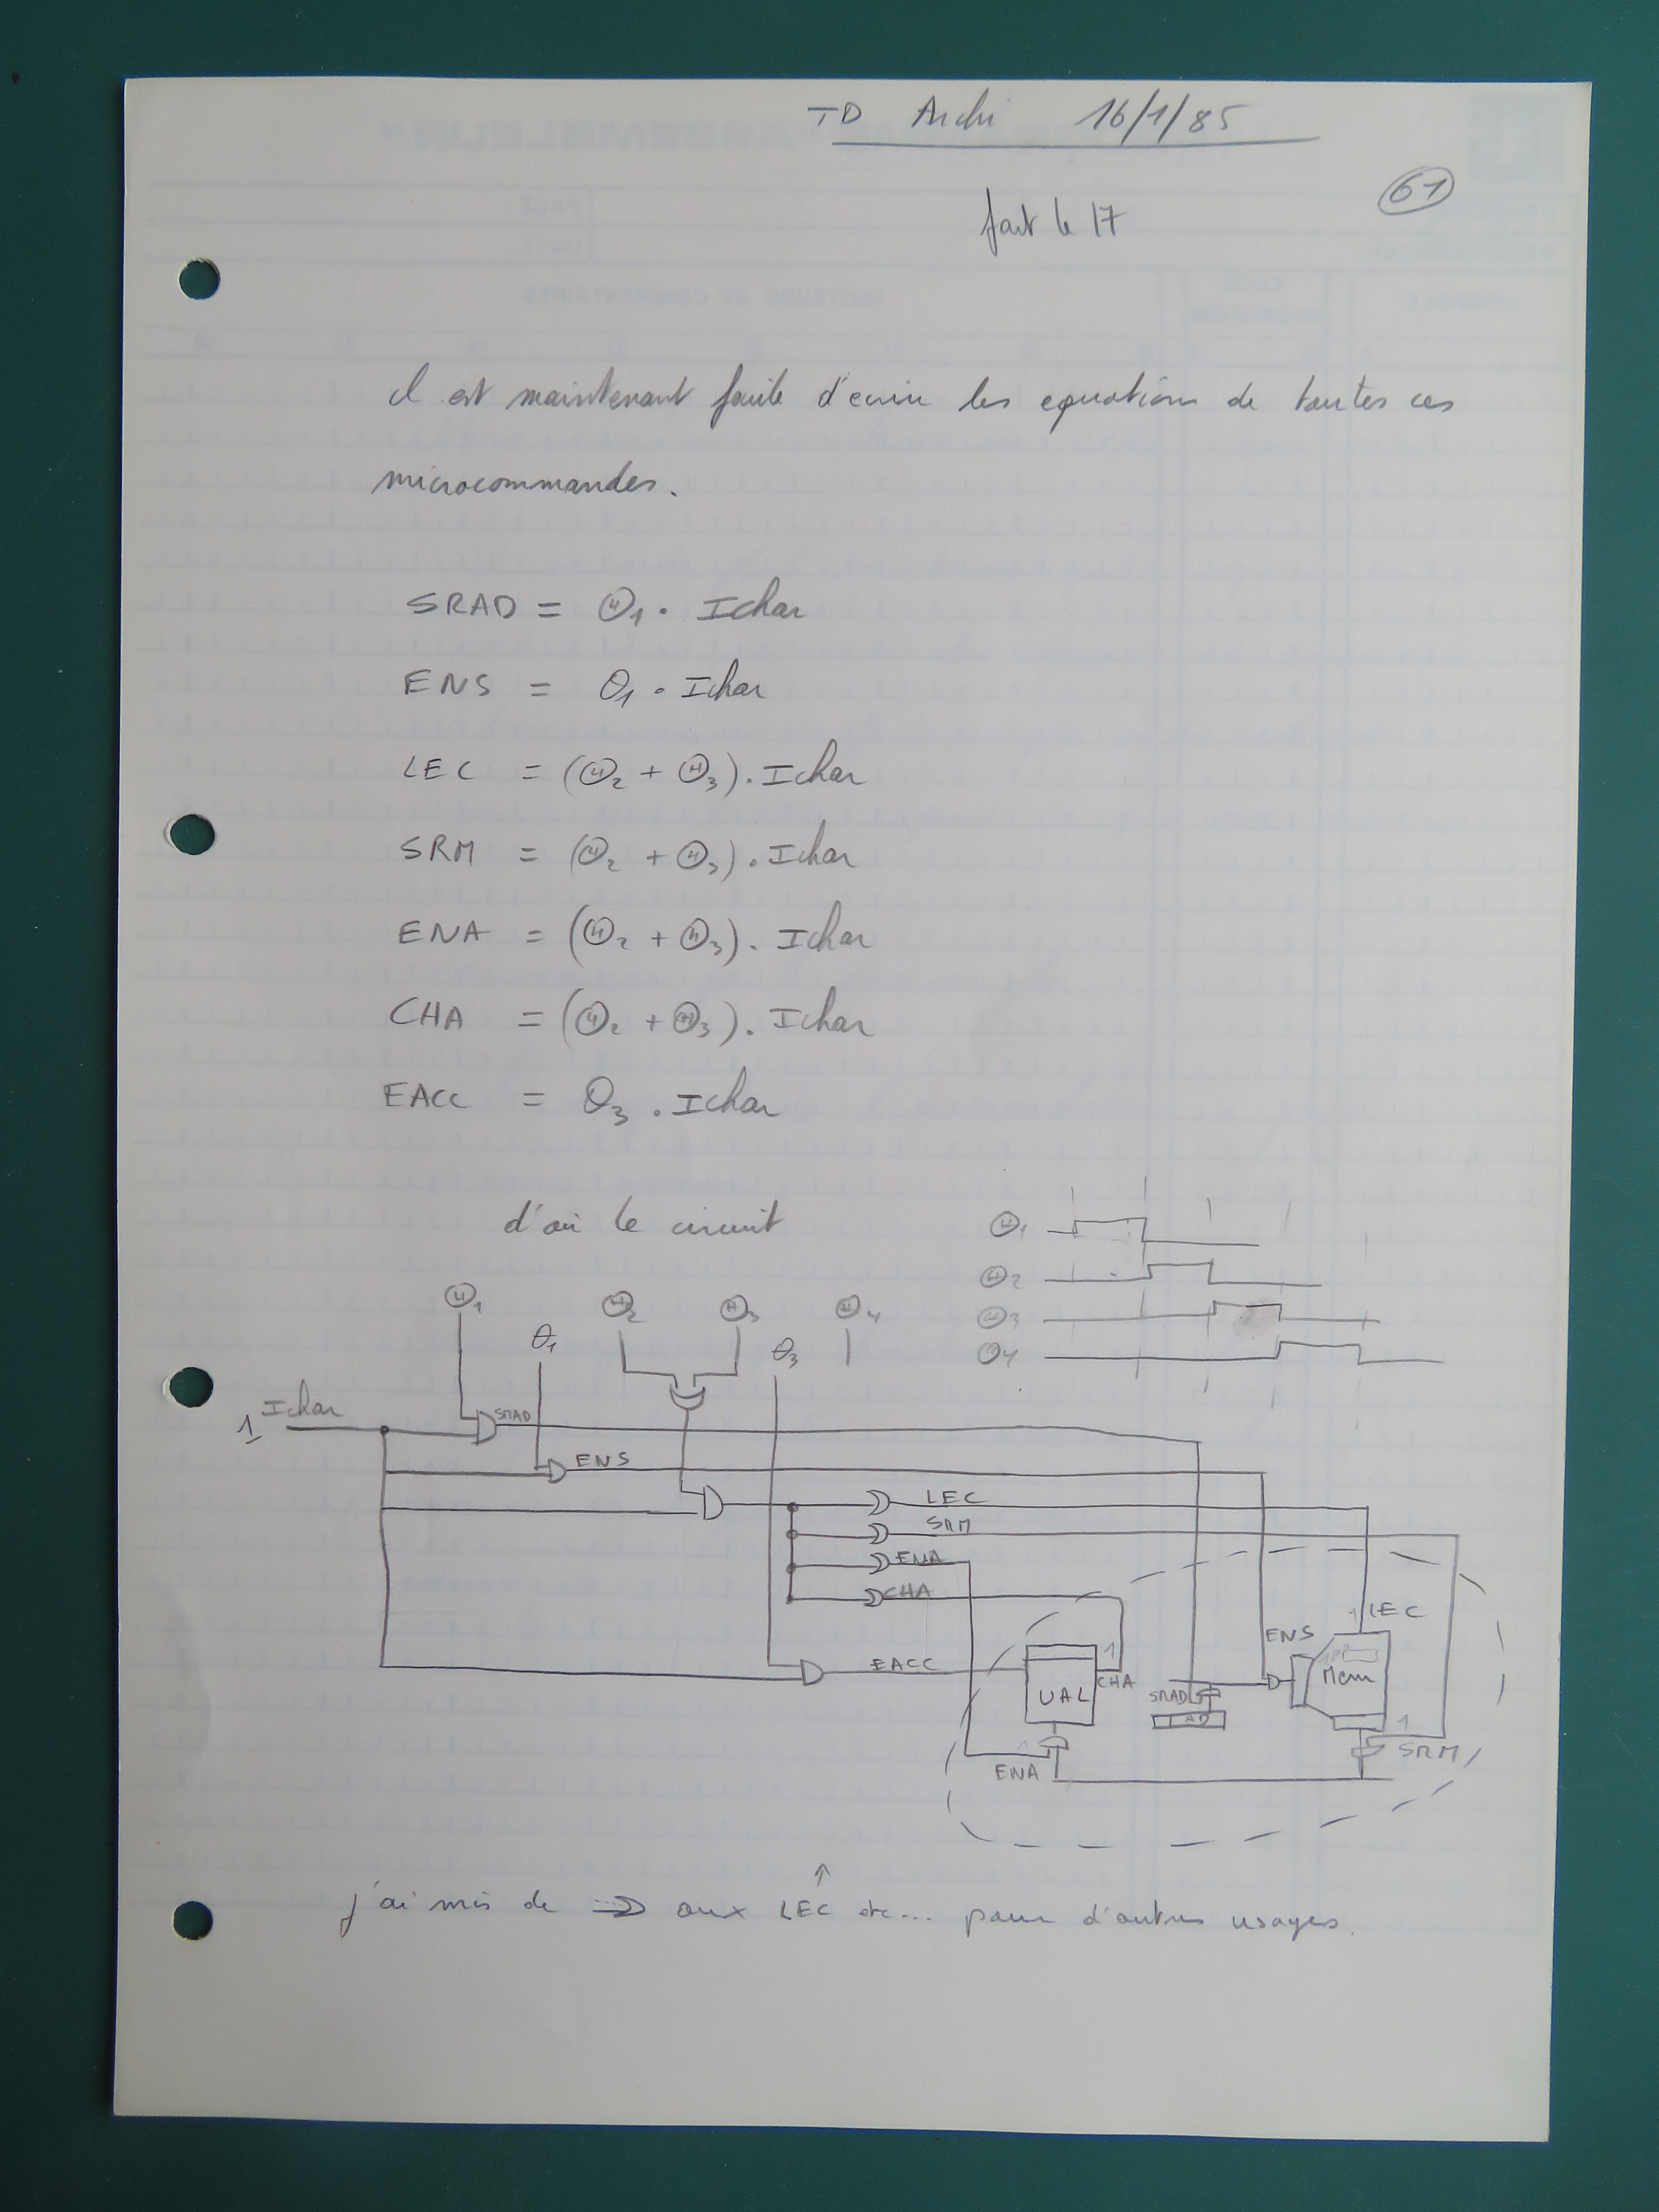 TD Archi 16/1/85
61
fait le 17
il est maintenant facile d'ecrire les equations de toutes ces
microcommandes.
SRAD = Ⓗ1 . Ichar
ENS = θ1 . Ichar
LEC = (Ⓗ2 + Ⓗ3) . Ichar
SRM = (Ⓗ2 + Ⓗ3) . Ichar
ENA = (Ⓗ2 + Ⓗ3) . Ichar
CHA = (Ⓗ2 + Ⓗ3) . Ichar
EACC = θ3 . Ichar
d'où le circuit
Ⓗ1
Ⓗ2
Ⓗ3
Ⓗ4
Ⓗ1 Ⓗ2 Ⓗ3 Ⓗ4
θ1 θ3
1 Ichar
SRAD
ENS
LEC
SRM
ENA
CHA
EACC
1 LEC
ENS
Mem
UAL 1 CHA
SRAD
AD
1
SRM
ENA
↑
j'ai mis de ⇒ aux LEC etc... pour d'autres usages.